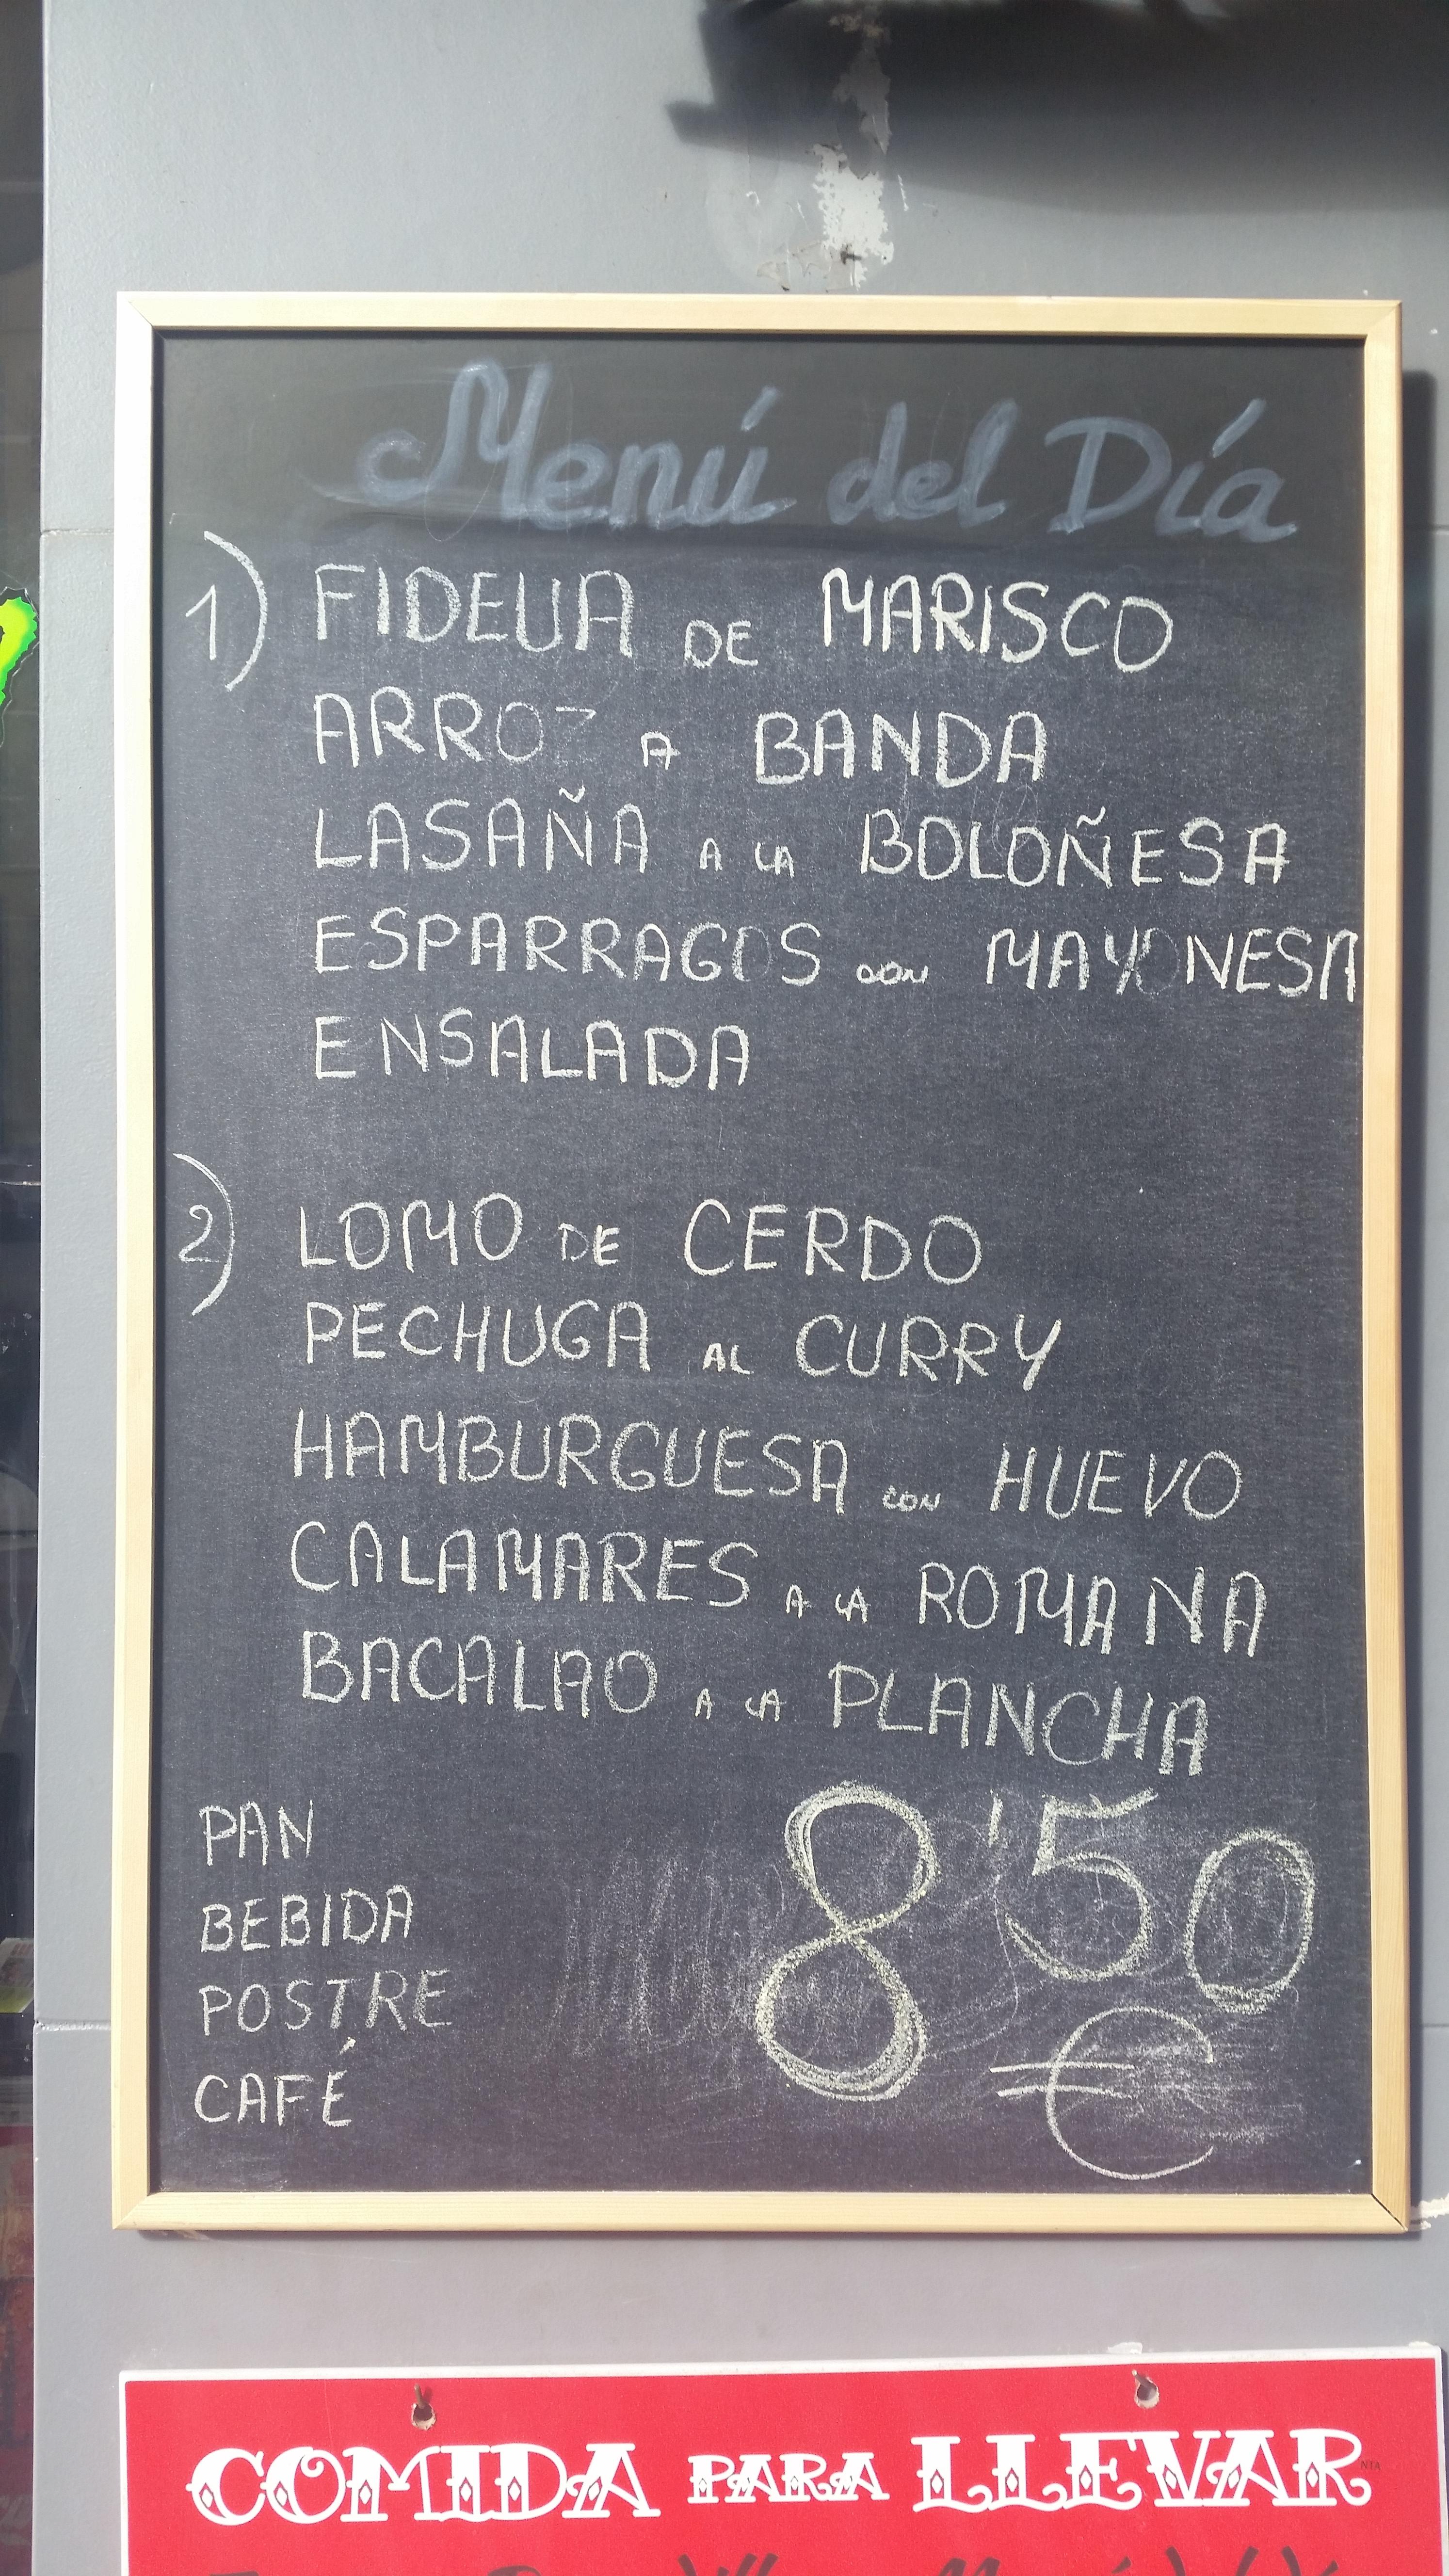 Menú del Día
1) FIDEUA DE MARISCO
ARROZ A BANDA
LASAÑA A LA BOLOÑESA
ESPARRAGOS CON MAYONESA
ENSALADA
2) LOMO DE CERDO
PECHUGA AL CURRY
HAMBURGUESA CON HUEVO
CALAMARES A LA ROMANA
BACALAO A LA PLANCHA
PAN
BEBIDA
POSTRE
CAFÉ
8'50
€
COMIDA PARA LLEVAR